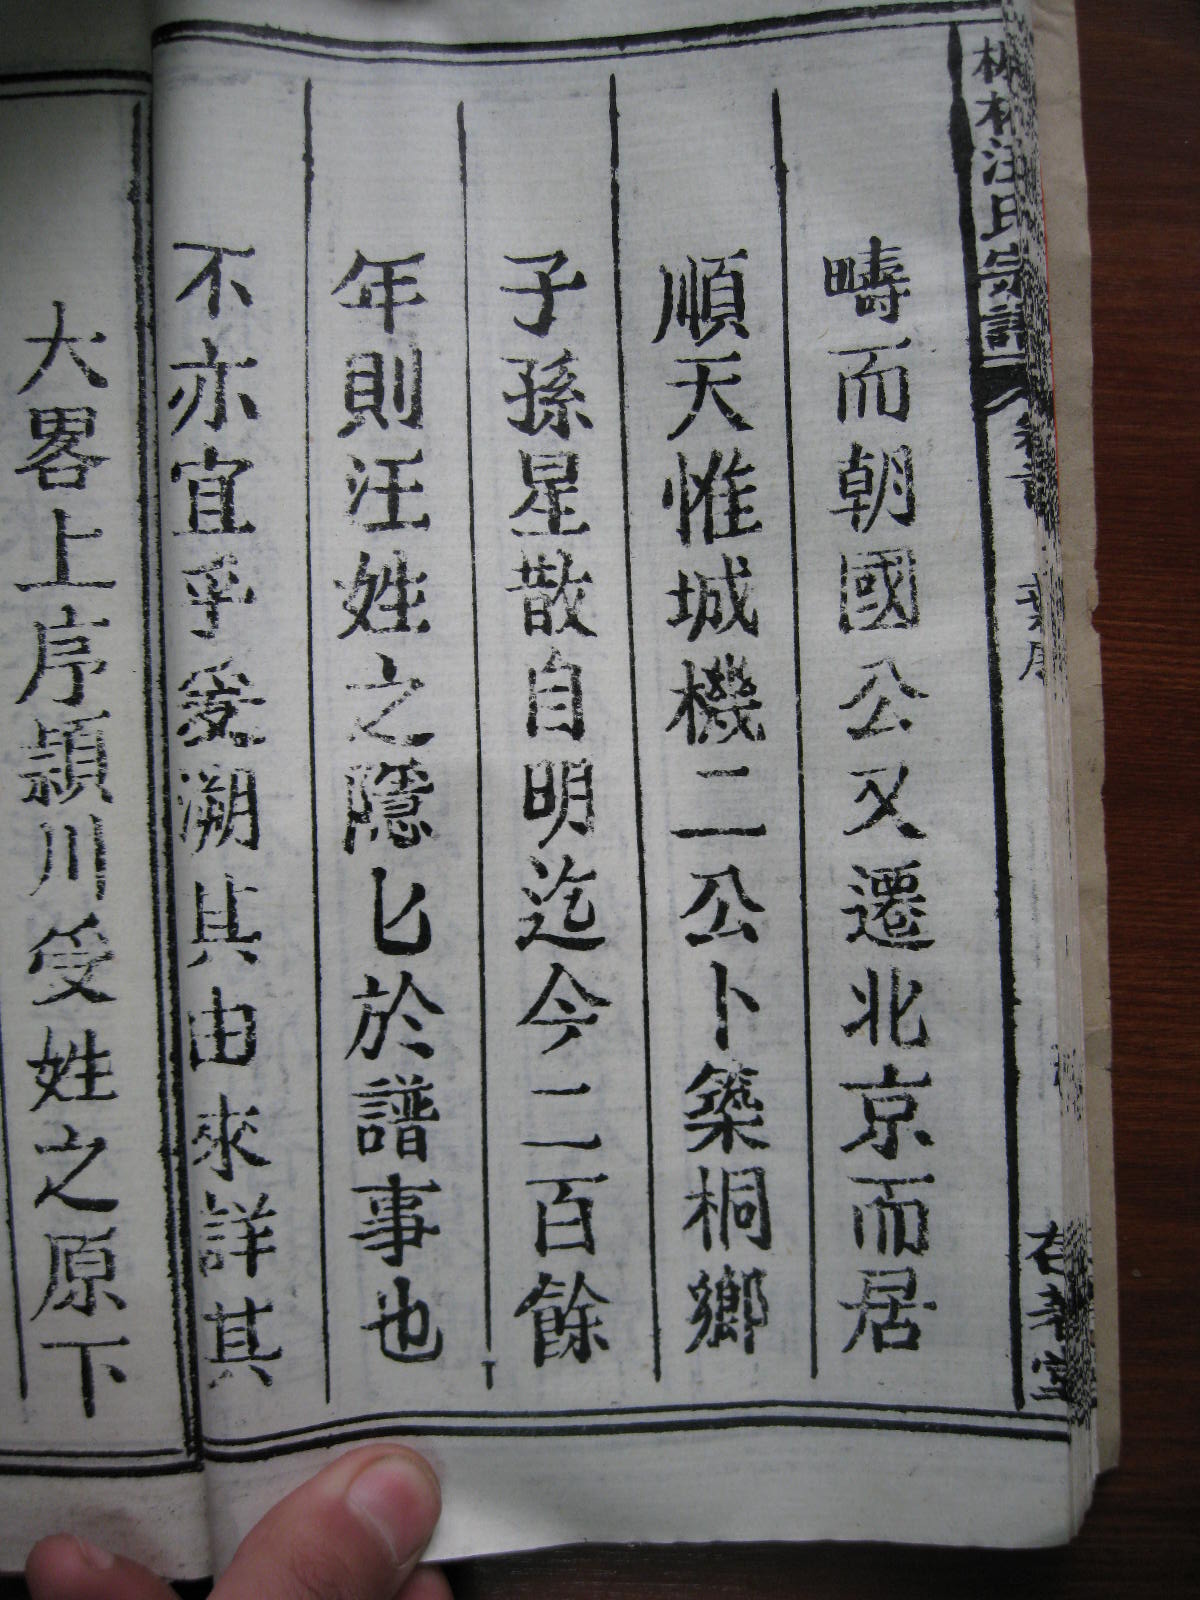 汪氏宗譜
疇而朝國公又遷北京而居
順天惟城機二公卜築桐鄉
子孫星散自明迄今二百餘
年則汪姓之隱匕於譜事也
不亦宜乎爰溯其由來詳其
大畧上序潁川受姓之原下